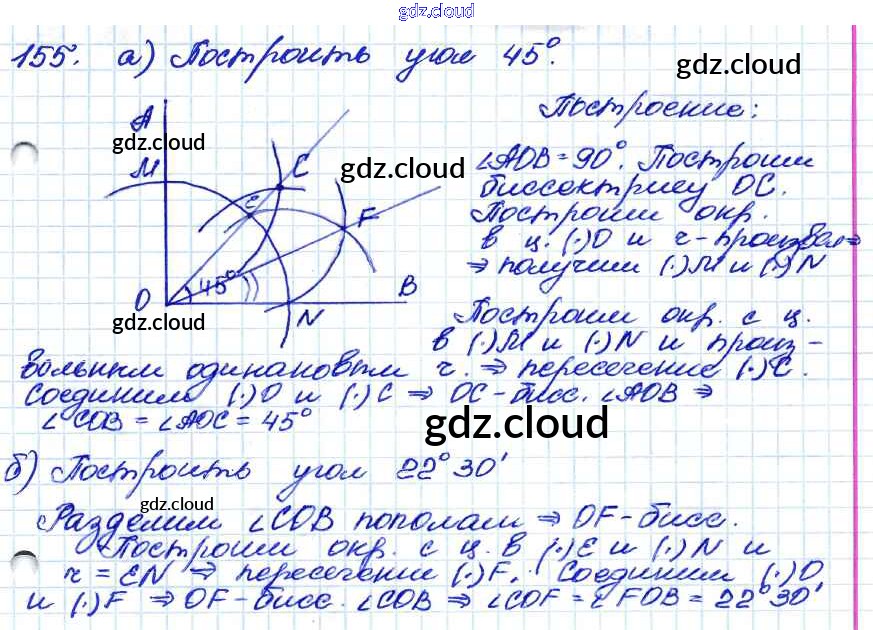 gdz.cloud
155. а) Построить угол 45°.
gdz.cloud
Построение:
A
gdz.cloud
M
C
gdz.cloud
∠AOB = 90°. Построим
биссектрису OC.
E
F
Построим окр.
в ц. (·)O и r - произвол ⇒
⇒ получим (·)M и (·)N
45°
O
B
gdz.cloud
N
Построим окр. с ц.
в (·)M и (·)N и произ-
вольным одинаковым r. ⇒ пересечение (·)C.
Соединим (·)O и (·)C ⇒ OC - бисс. ∠AOB ⇒
∠COB = ∠AOC = 45°
gdz.cloud
б) Построить угол 22°30'
gdz.cloud
Разделим ∠COB пополам ⇒ OF - бисс.
Построим окр. с ц. в (·)E и (·)N и
r = EN ⇒ пересечение (·)F. Соединим (·)O
gdz.cloud
и (·)F ⇒ OF - бисс. ∠COB ⇒ ∠COF = ∠FOB = 22°30'